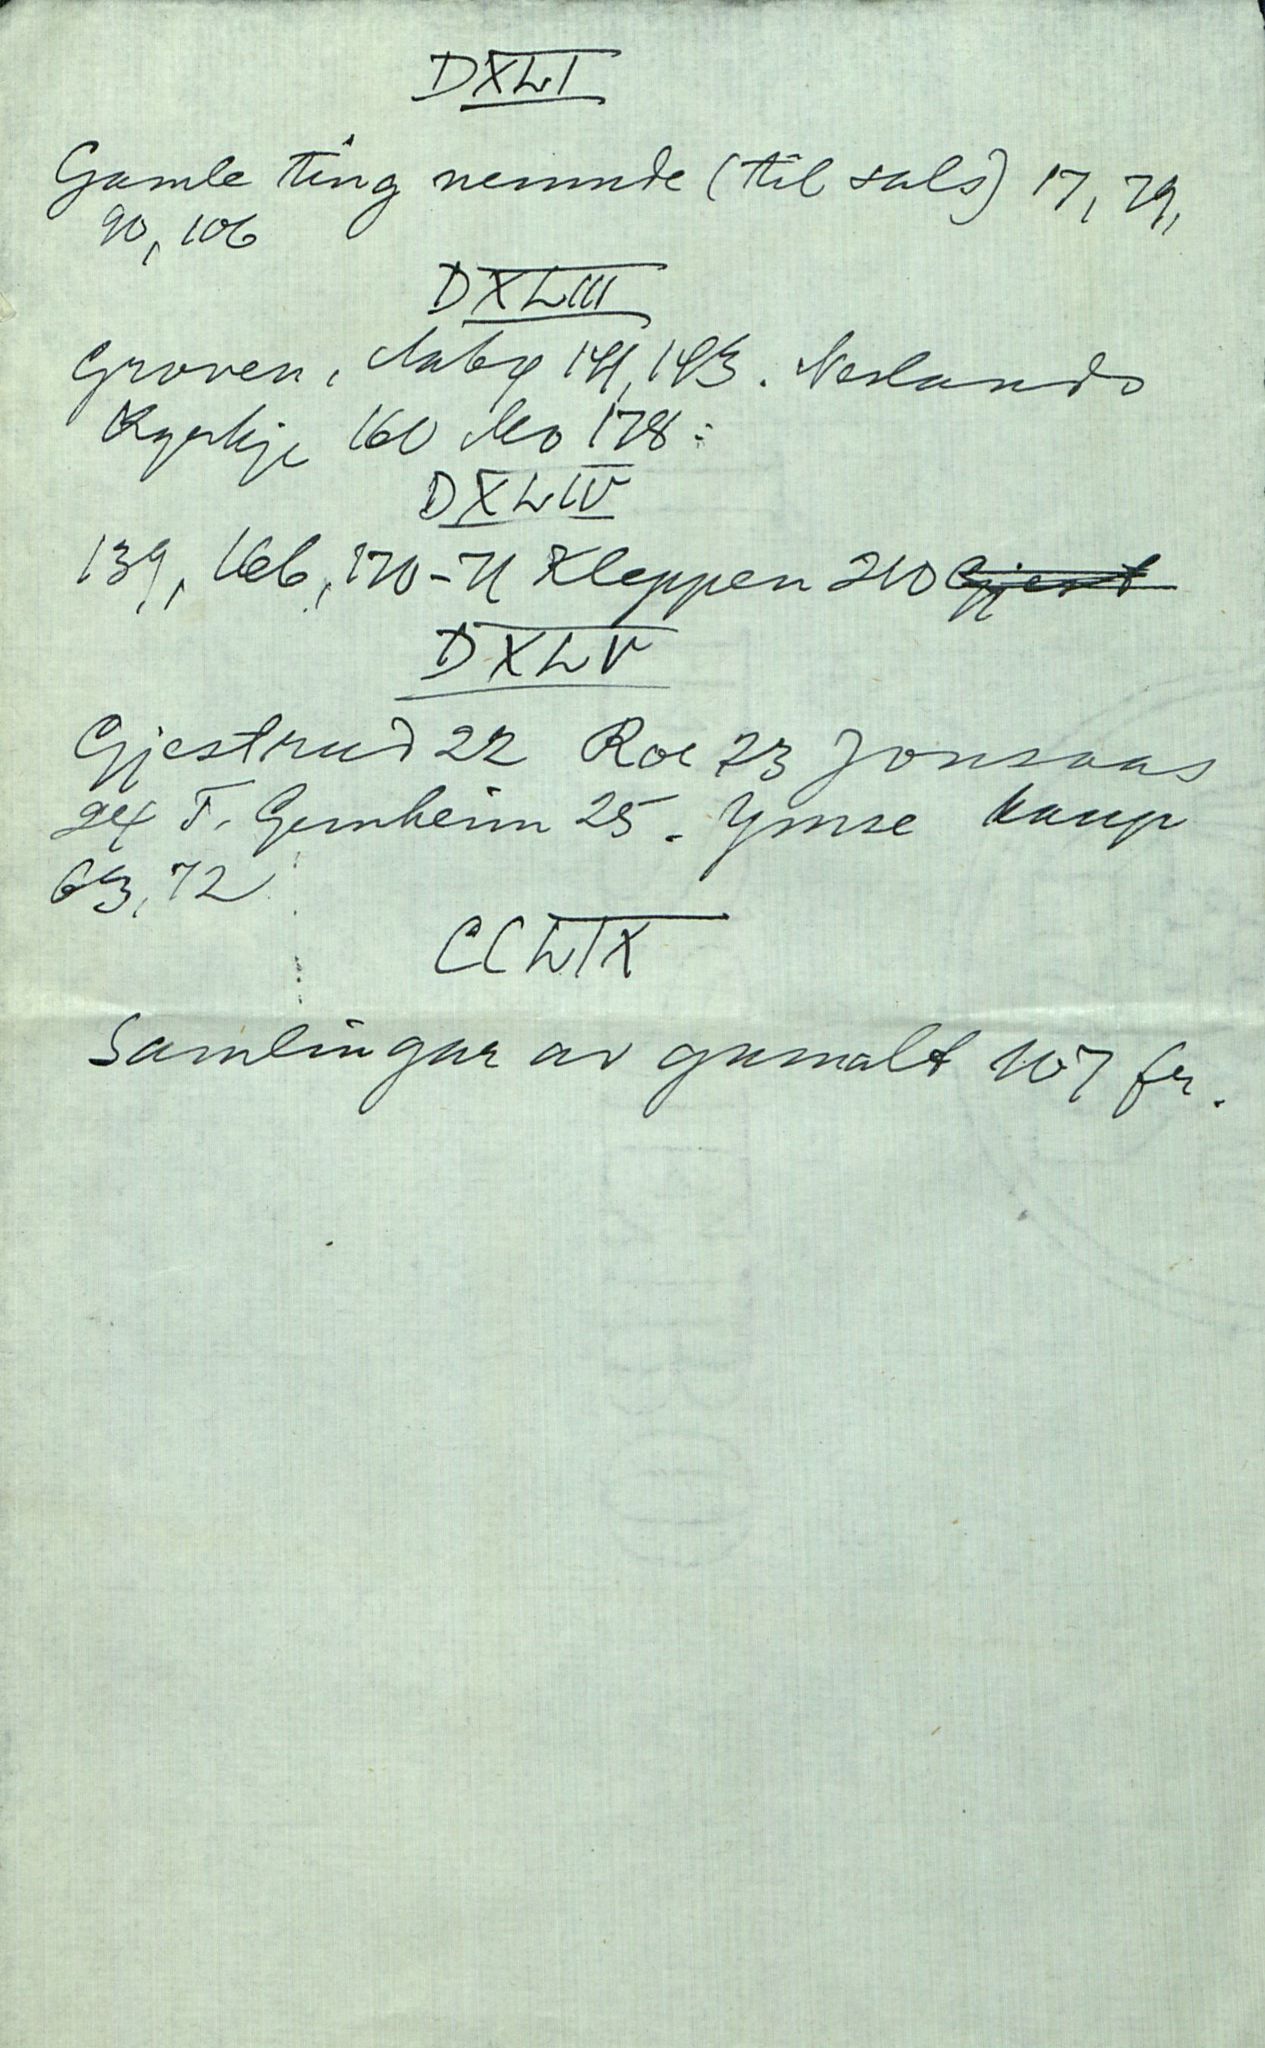 DXLI
Gamle ting nemnde (til sals) 17, 79,
90, 106
DXLIII
Groven, 141, 143. Neslands
Kyrkje 160 Mo 178
DXLIV
139, 166, 170-71 Kleppen 210 Gjest
DXLV
Gjestrud 22 Roe 23 Jonsaas
24 T. Gernheim 25. Ymse kaup
63, 72
CCLIX
Samlingar av gamalt 107 fr.